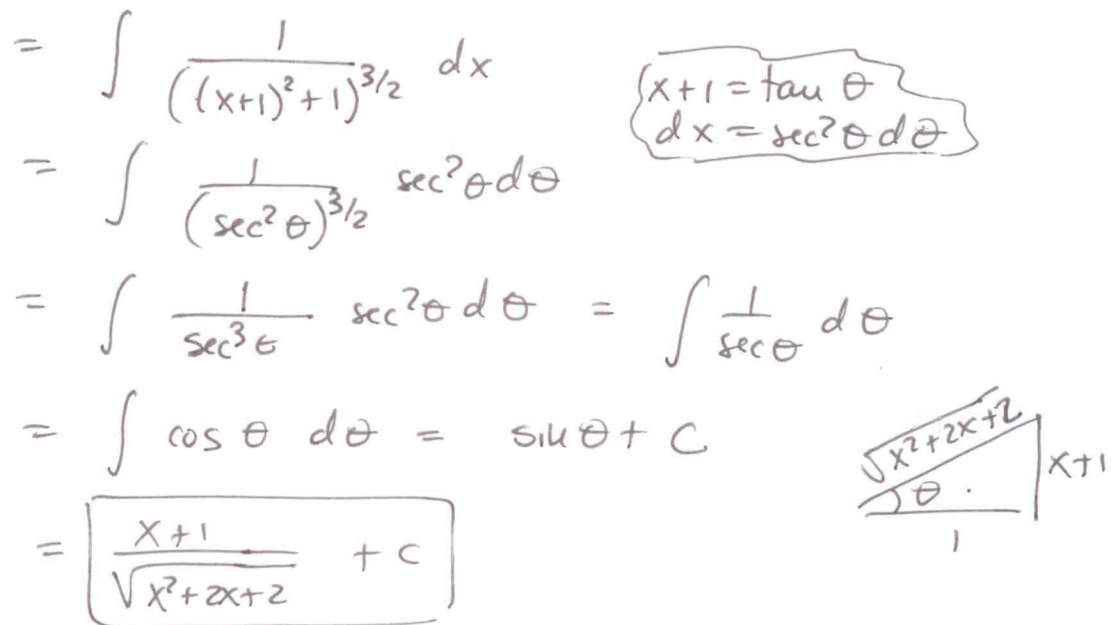 = ∫ 1/((x+1)²+1)^{3/2} dx
x+1 = tan θ
dx = sec²θ dθ
= ∫ 1/(sec²θ)^{3/2} sec²θ dθ
= ∫ 1/sec³θ sec²θ dθ = ∫ 1/secθ dθ
= ∫ cos θ dθ = sin θ + C
√(x²+2x+2)
x+1
θ
1
= (x+1)/√(x²+2x+2) + C